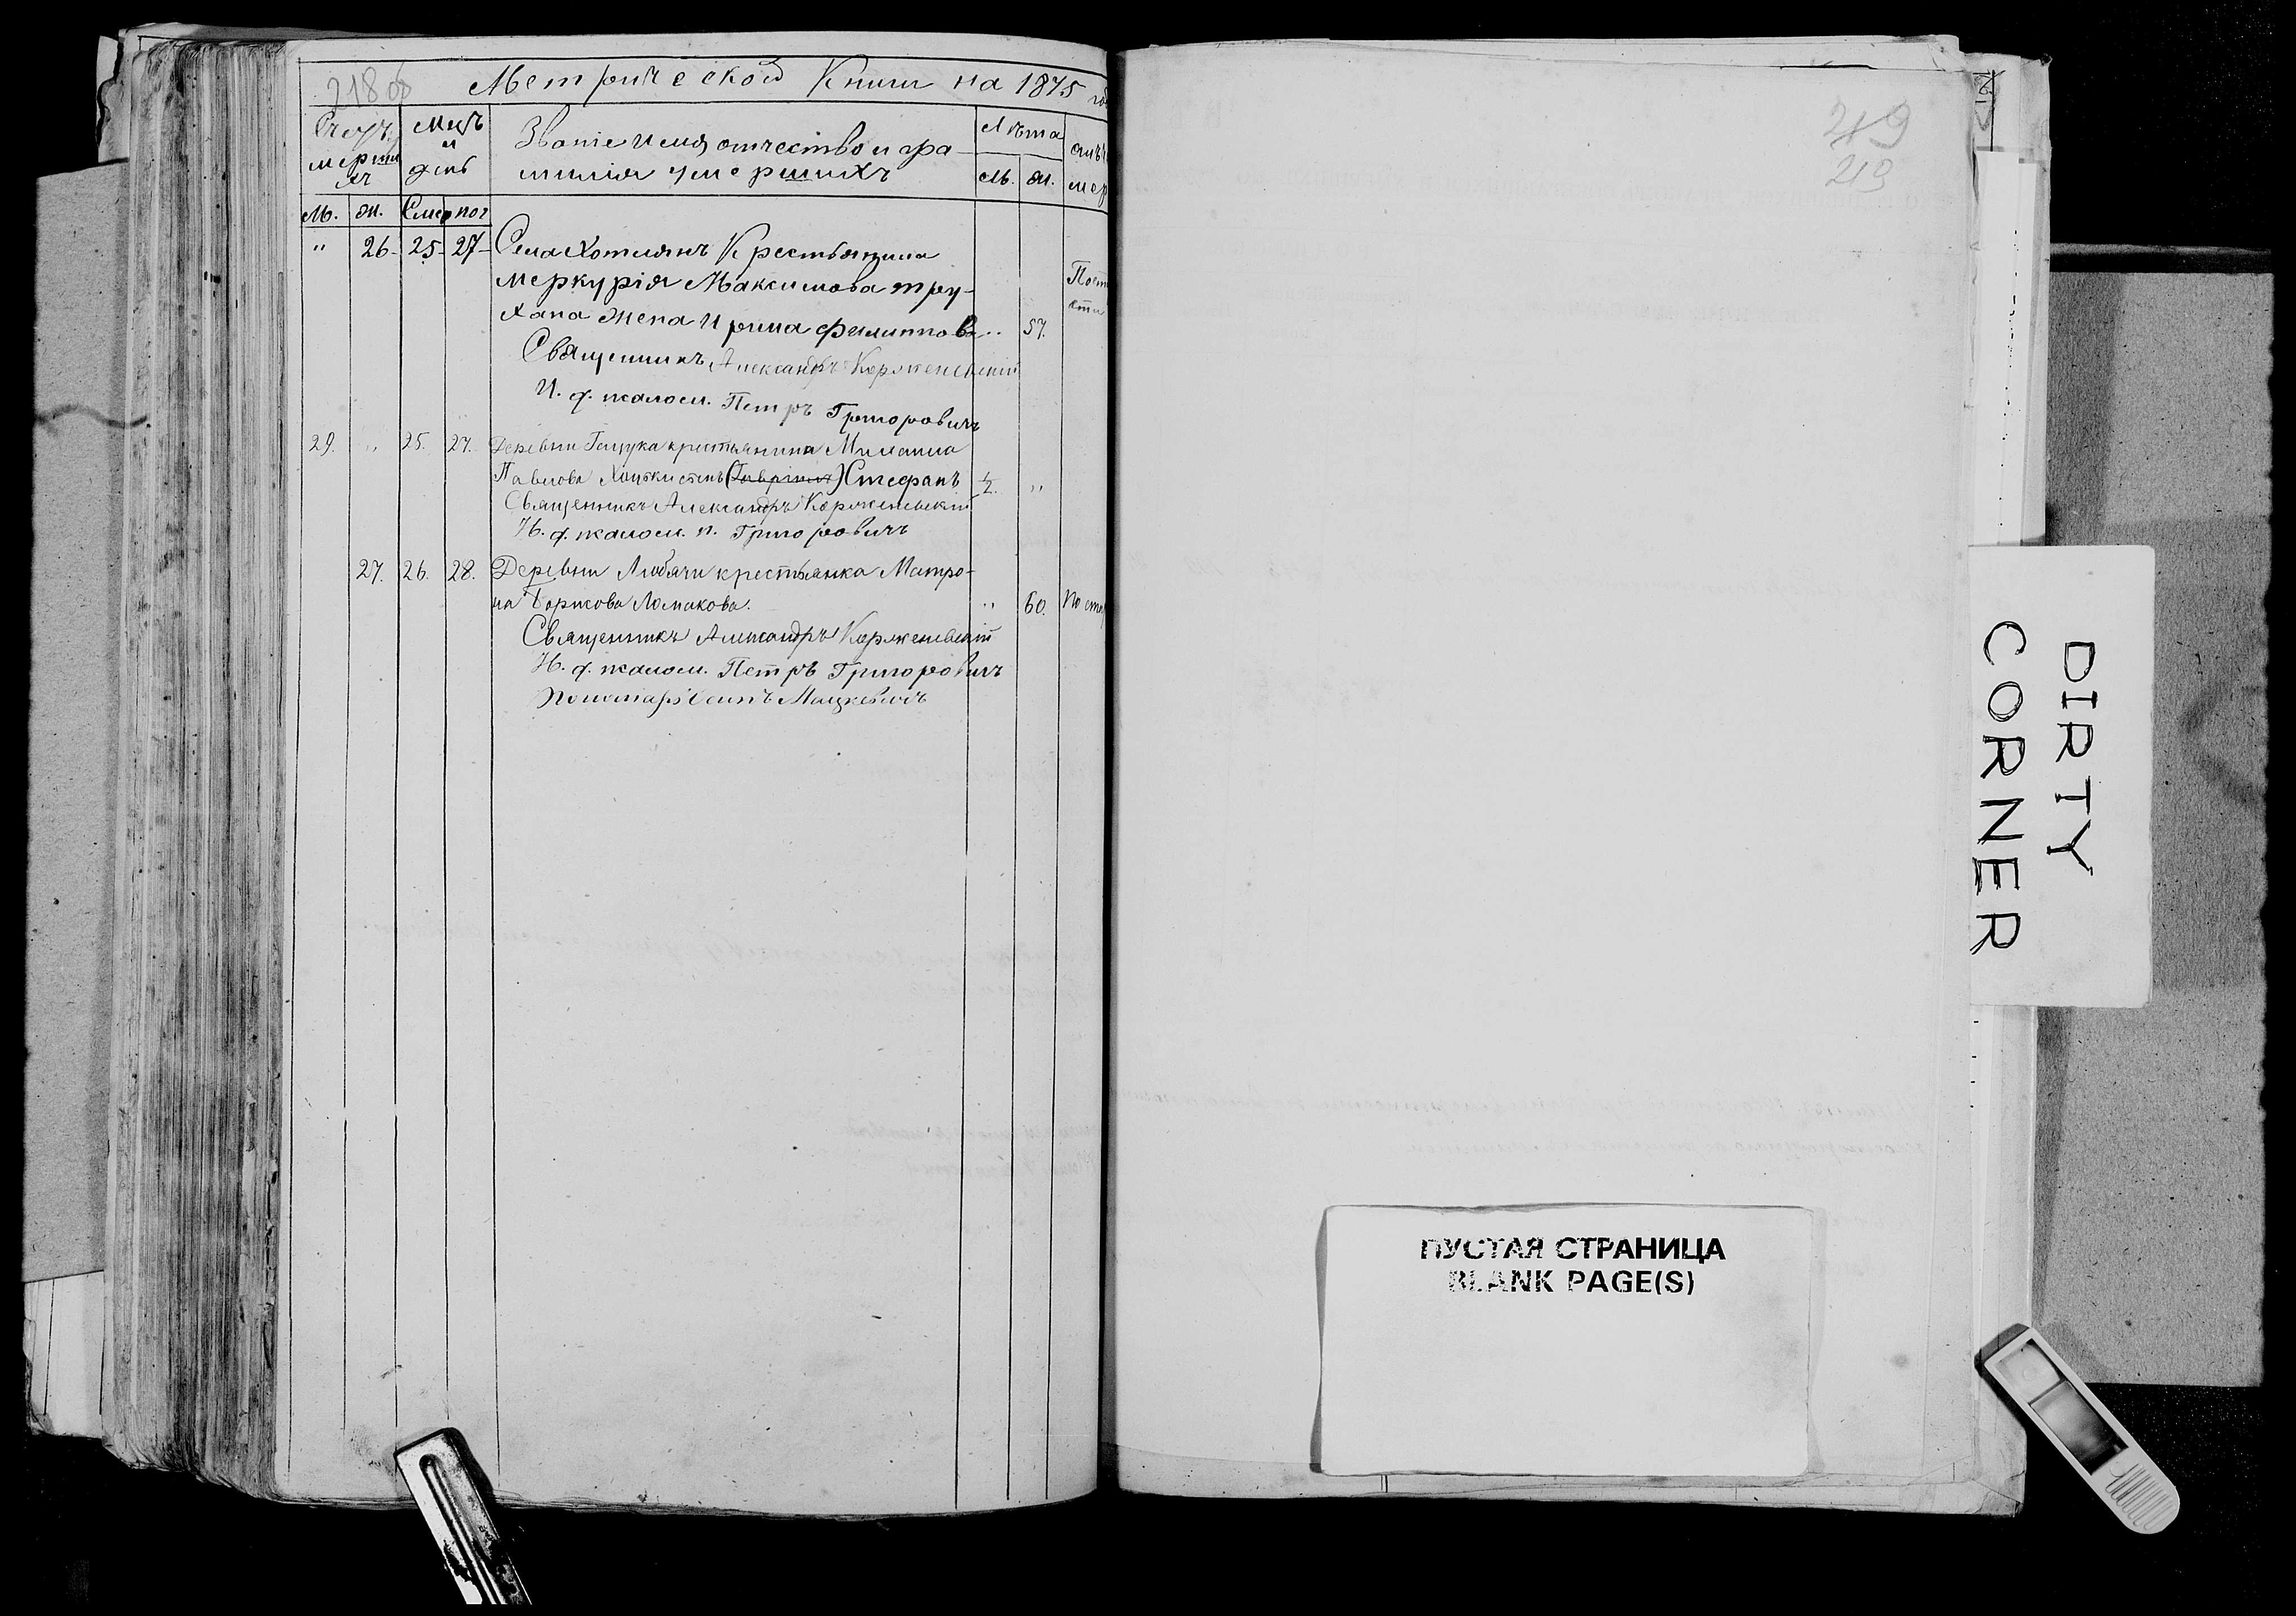 218 об
Метрической Книги на 1875 год
Счетъ мерши хъ
Мцъ и день
Званіе имя отчество и фа-
милія умершихъ
Лѣта
М. Ж.
М. Ж. Смер пог
" 26. 25 27 Села Хотлянъ Крестьянина
Меркурія Максимова тру-
хана жена Ирина Филиппова " 57.
Священникъ Александръ Корженевскій
И. д. псалом. Петръ Григоровичъ
29. " 25. 27. Деревни крестьянина Михаила
Павлова сынъ Стефанъ 1/2. "
Священникъ Александръ Корженевскій
И. д. псалом. П. Григоровичъ
27. 26. 28. Деревни Любячи крестьянка Матро-
на Борисова Ломакова. " 60.
Священникъ Александръ Корженевскій
И. д. псалом. Петръ Григоровичъ
Пономарь Мацкевичъ
219
219
DIRTY
CORNER
ПУСТАЯ СТРАНИЦА
BLANK PAGE(S)